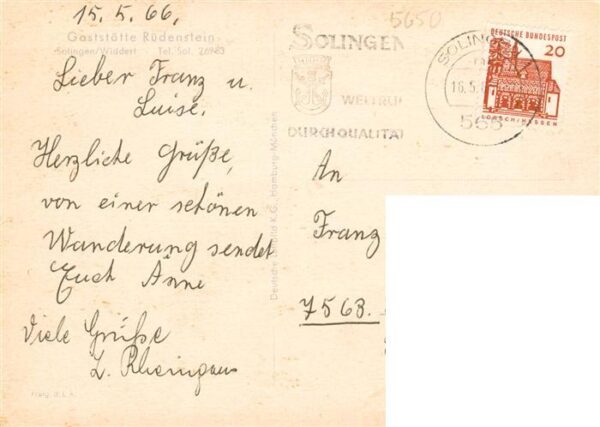 15.5.66.
Gaststätte Rüdenstein
Solingen/Widdert Tel. Sol. 26983
Lieber Franz u.
Luise.
Herzliche Grüße,
von einer schönen
Wanderung sendet
Euch Änne
Viele Grüße
Frang. d. L. A.
Hamburg-München
5650
SOLINGEN
WELTRUF
DURCH QUALITÄT
SOLINGEN
16.5.
565
DEUTSCHE BUNDESPOST
20
LORSCH/HESSEN
An
Franz
7563.